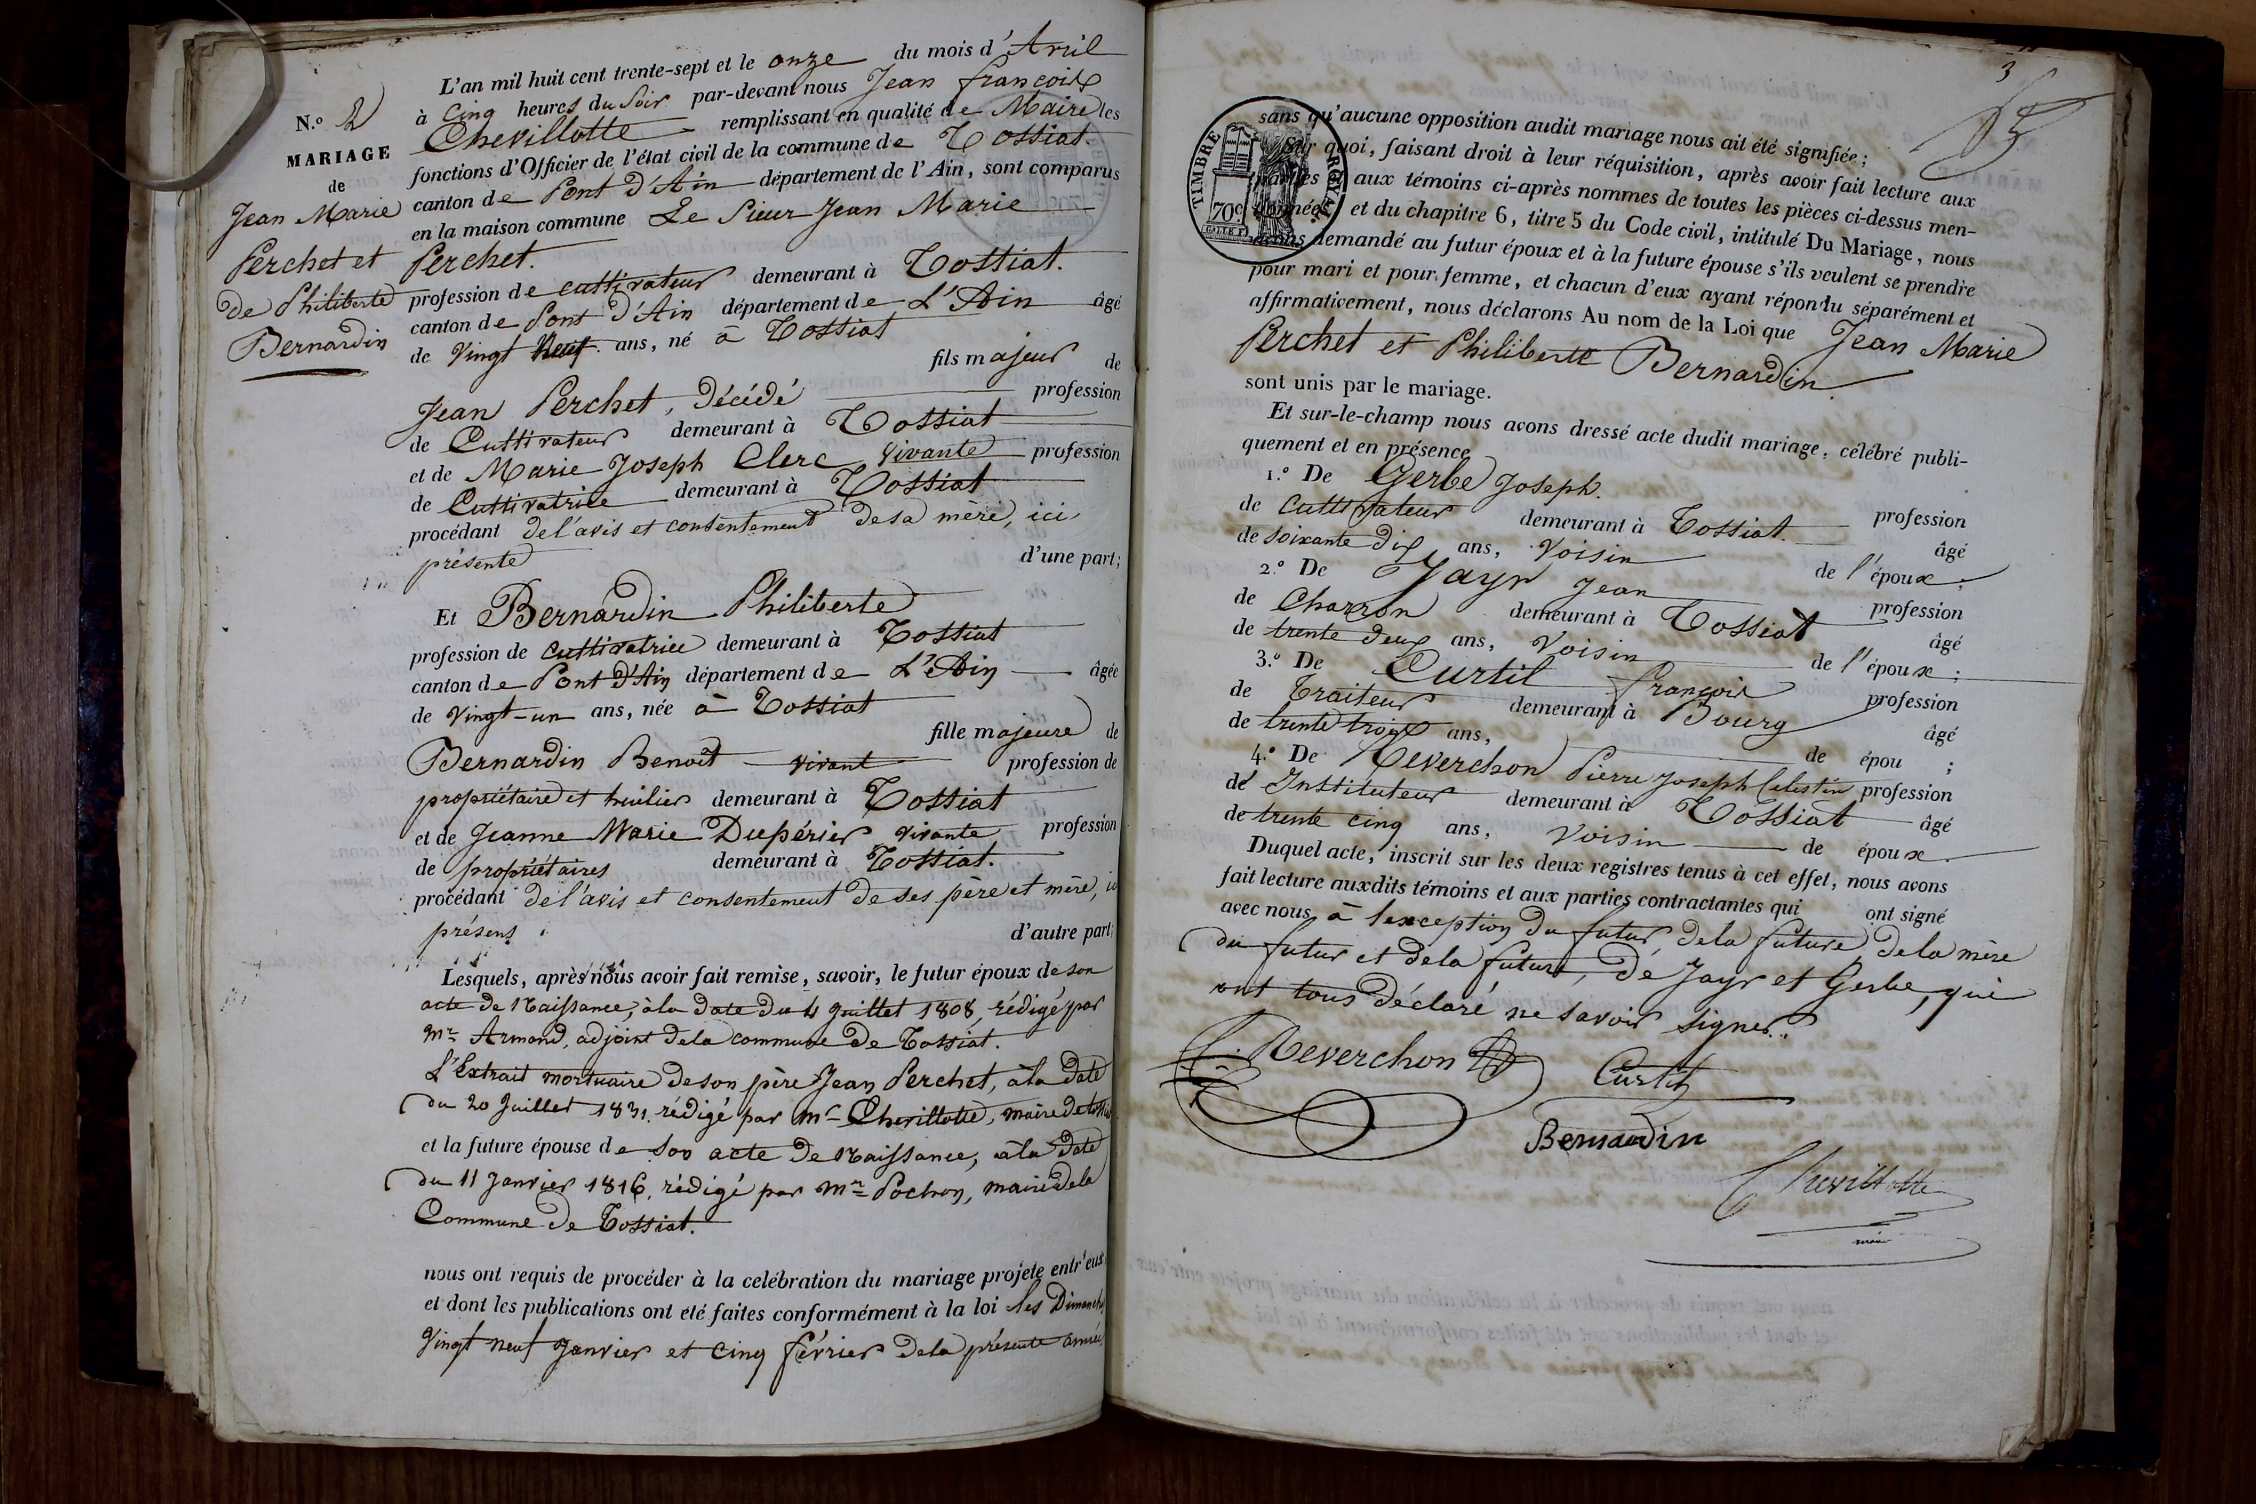 N.º 2
MARIAGE
de
Jean Marie
Perchet et
de Philiberte
Bernardin
L'an mil huit cent trente-sept et le onze du mois d'Avril
à Cinq heures du Soir par-devant nous Jean françois
Chevillotte remplissant en qualité de Maire les
fonctions d'Officier de l'état civil de la commune de Tossiat.
canton de Pont d'Ain département de l'Ain, sont comparus
en la maison commune Le Sieur Jean Marie
Perchet.
profession de cultivateur demeurant à Tossiat.
canton de Pont d'Ain département de L'Ain âgé
de Vingt Neuf ans, né à Tossiat
fils majeur de
Jean Perchet, Décédé profession
de Cultivateur demeurant à Tossiat
et de Marie Joseph Clerc Vivante profession
de Cultivatrice demeurant à Tossiat
procédant de l'avis et consentement de sa mère, ici
présente d'une part;
Et Bernardin Philiberte
profession de cultivatrice demeurant à Tossiat
canton de Pont d'Ain département de L'Ain âgée
de Vingt-un ans, née à Tossiat
fille majeure de
Bernardin Benoît vivant profession de
propriétaire et huilier demeurant à Tossiat
et de Jeanne Marie Dupérier vivante profession
de propriétaires demeurant à Tossiat.
procédant de l'avis et consentement de ses père et mère,
présens d'autre part;
Lesquels, après nous avoir fait remise, savoir, le futur époux de son
acte de Naissance, à la date du 4 Juillet 1808, rédigé par
Mr Armand, adjoint de la commune de Tossiat.
L'Extrait mortuaire de son père Jean Perchet, à la date
du 20 Juillet 1831, rédigé par Mr Chevillotte, maire de
et la future épouse de son acte de Naissance, à la date
du 11 Janvier 1816, rédigé par Mr Pochon, maire de la
Commune de Tossiat.
nous ont requis de procéder à la celébration du mariage projeté entr'eux
et dont les publications ont été faites conformément à la loi les Dimanches
Vingt neuf Janvier et cinq février de la présente année
3
TIMBRE ROYAL
70c
sans qu'aucune opposition audit mariage nous ait été signifiée;
Sur quoi, faisant droit à leur réquisition, après avoir fait lecture aux
parties aux témoins ci-après nommes de toutes les pièces ci-dessus men-
et du chapitre 6, titre 5 du Code civil, intitulé Du Mariage, nous
demandé au futur époux et à la future épouse s'ils veulent se prendre
pour mari et pour femme, et chacun d'eux ayant répondu séparément et
affirmativement, nous déclarons Au nom de la Loi que Jean Marie
Perchet et Philiberte Bernardin
sont unis par le mariage.
Et sur-le-champ nous avons dressé acte dudit mariage, célébré publi-
quement et en présence
1.º De Gerbe Joseph. profession
de cultivateur demeurant à Tossiat. âgé
de soixante Dix ans, Voisin de l'époux;
2.º De Jayr Jean profession
de Charron demeurant à Tossiat âgé
de trente Deux ans, Voisin de l'époux;
3.º De Curtil françois profession
de Traiteur demeurant à Bourg âgé
de trente trois ans, de épou ;
4.º De Reverchon Pierre Joseph Celestin profession
de Instituteur demeurant à Tossiat âgé
de trente cinq ans, Voisin de époux.
Duquel acte, inscrit sur les deux registres tenus à cet effet, nous avons
fait lecture auxdits témoins et aux parties contractantes qui ont signé
avec nous, à l'exception du futur, de la future de la mère
du futur et de la future, de Jayr et Gerbe, qui
ont tous déclaré ne savoir signer.
Reverchon
Curtil
Bernardin
Chevillotte
maire